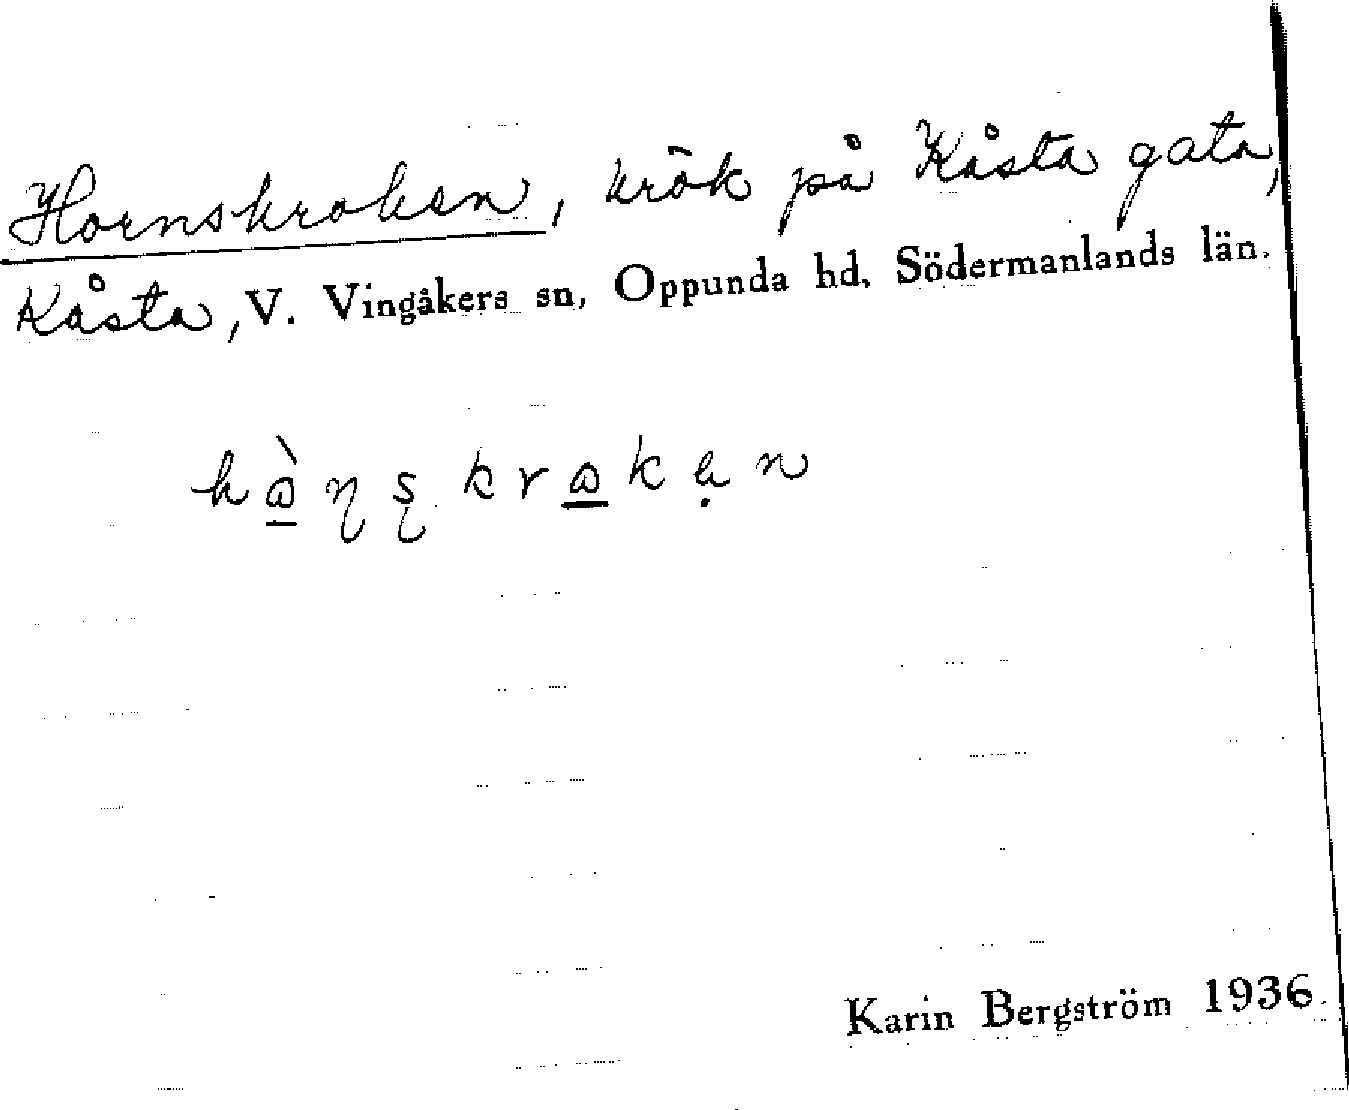 Hornskroken, krök på Kåsta gata,
Kåsta, V. Vingåkers sn, Oppunda hd, Södermanlands län.
Karin Bergström 1936.